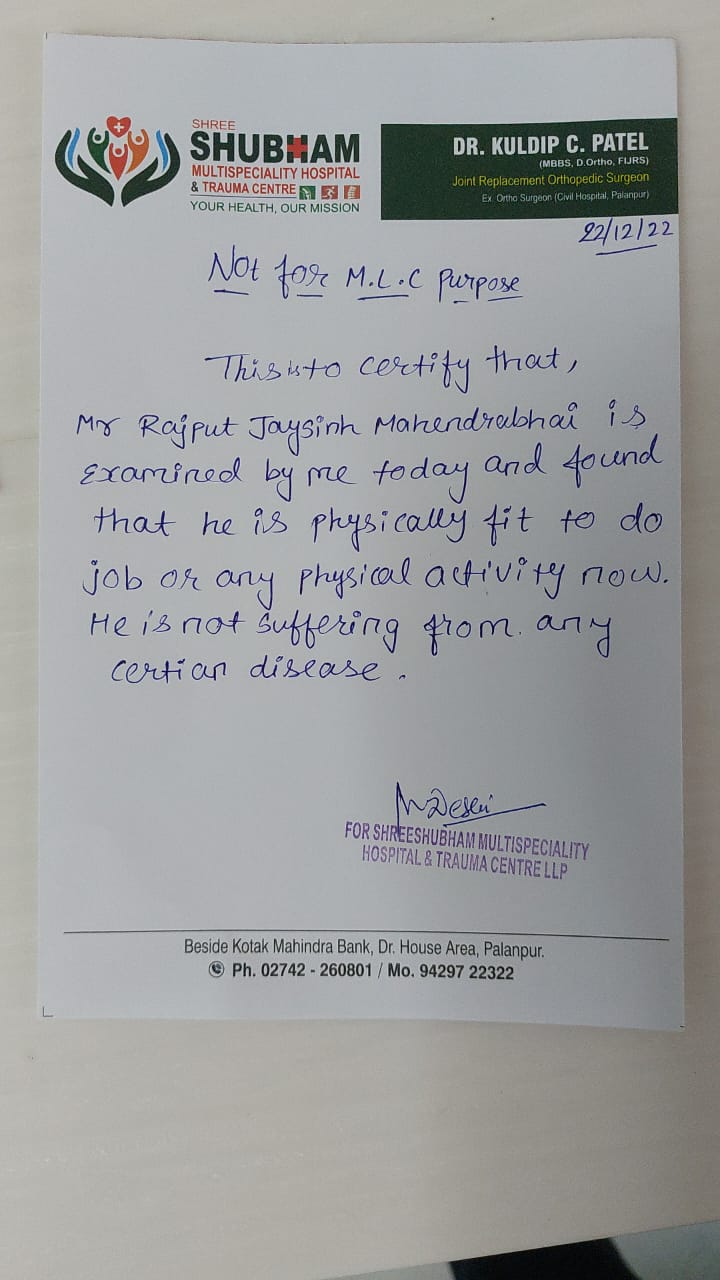 SHREE
SHUBHAM
MULTISPECIALITY HOSPITAL
& TRAUMA CENTRE
YOUR HEALTH, OUR MISSION
DR. KULDIP C. PATEL
(MBBS, D.Ortho, FIJRS)
Joint Replacement Orthopedic Surgeon
Ex. Ortho Surgeon (Civil Hospital, Palanpur)
22/12/22
Not for M.L.C Purpose
This is to certify that,
Mr Rajput Jaysinh Mahendrabhai is
Examined by me today and found
that he is physically fit to do
job or any physical activity now.
He is not suffering from any
certian disease.
FOR SHREESHUBHAM MULTISPECIALITY
HOSPITAL & TRAUMA CENTRE LLP
Beside Kotak Mahindra Bank, Dr. House Area, Palanpur.
Ph. 02742 - 260801 / Mo. 94297 22322